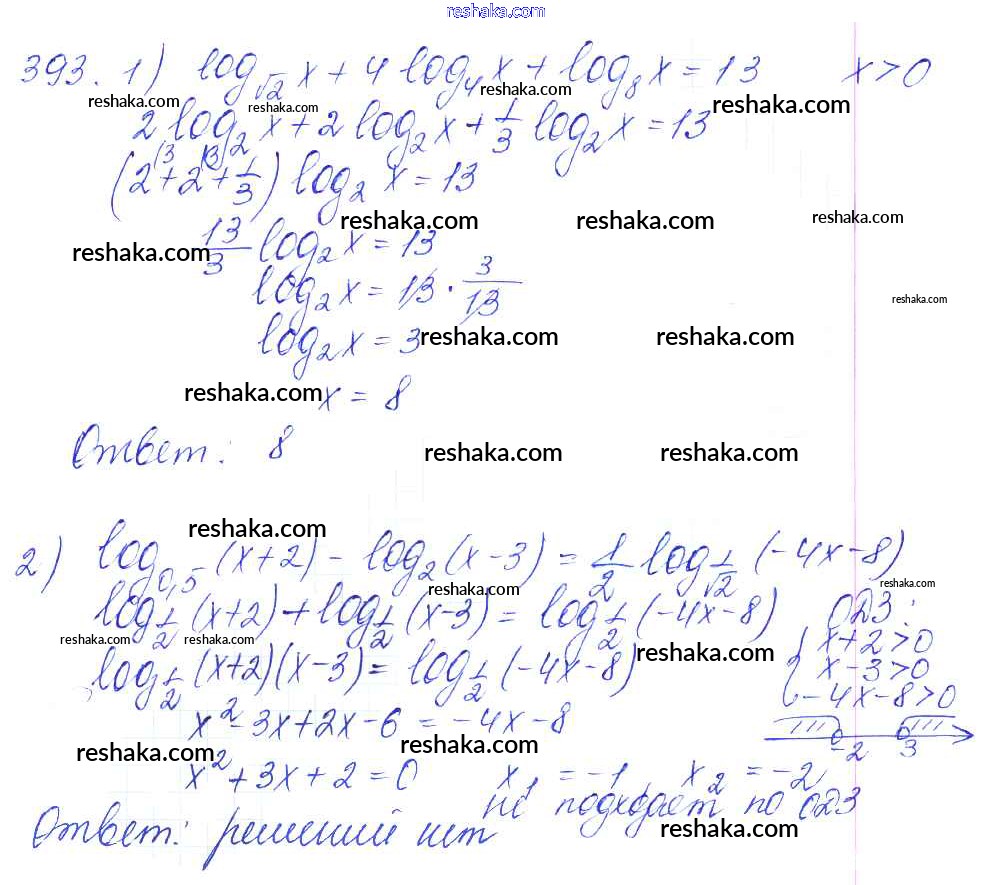 reshaka.com
393. 1) log_√2 x + 4 log_4 x + log_8 x = 13 x > 0
reshaka.com reshaka.com reshaka.com
2 log_2 x + 2 log_2 x + 1/3 log_2 x = 13
(2^(3 + 2^(3 + 1/3) log_2 x = 13
reshaka.com reshaka.com reshaka.com
reshaka.com 13/3 log_2 x = 13
log_2 x = 13 · 3/13
reshaka.com
log_2 x = 3 reshaka.com reshaka.com
reshaka.com x = 8
Ответ: 8 reshaka.com reshaka.com
reshaka.com
2) log_0,5 (x+2) - log_2 (x-3) = 1/2 log_1/√2 (-4x-8)
reshaka.com reshaka.com
log_1/2 (x+2) + log_1/2 (x-3) = log_1/2 (-4x-8) ОДЗ:
reshaka.com reshaka.com reshaka.com
log_1/2 (x+2)(x-3) = log_1/2 (-4x-8)
{ x+2>0
x-3>0
-4x-8>0
x² - 3x + 2x - 6 = -4x - 8
-2 3
reshaka.com reshaka.com
x² + 3x + 2 = 0 x_1 = -1, x_2 = -2
не подходят по ОДЗ
reshaka.com
Ответ: решений нет